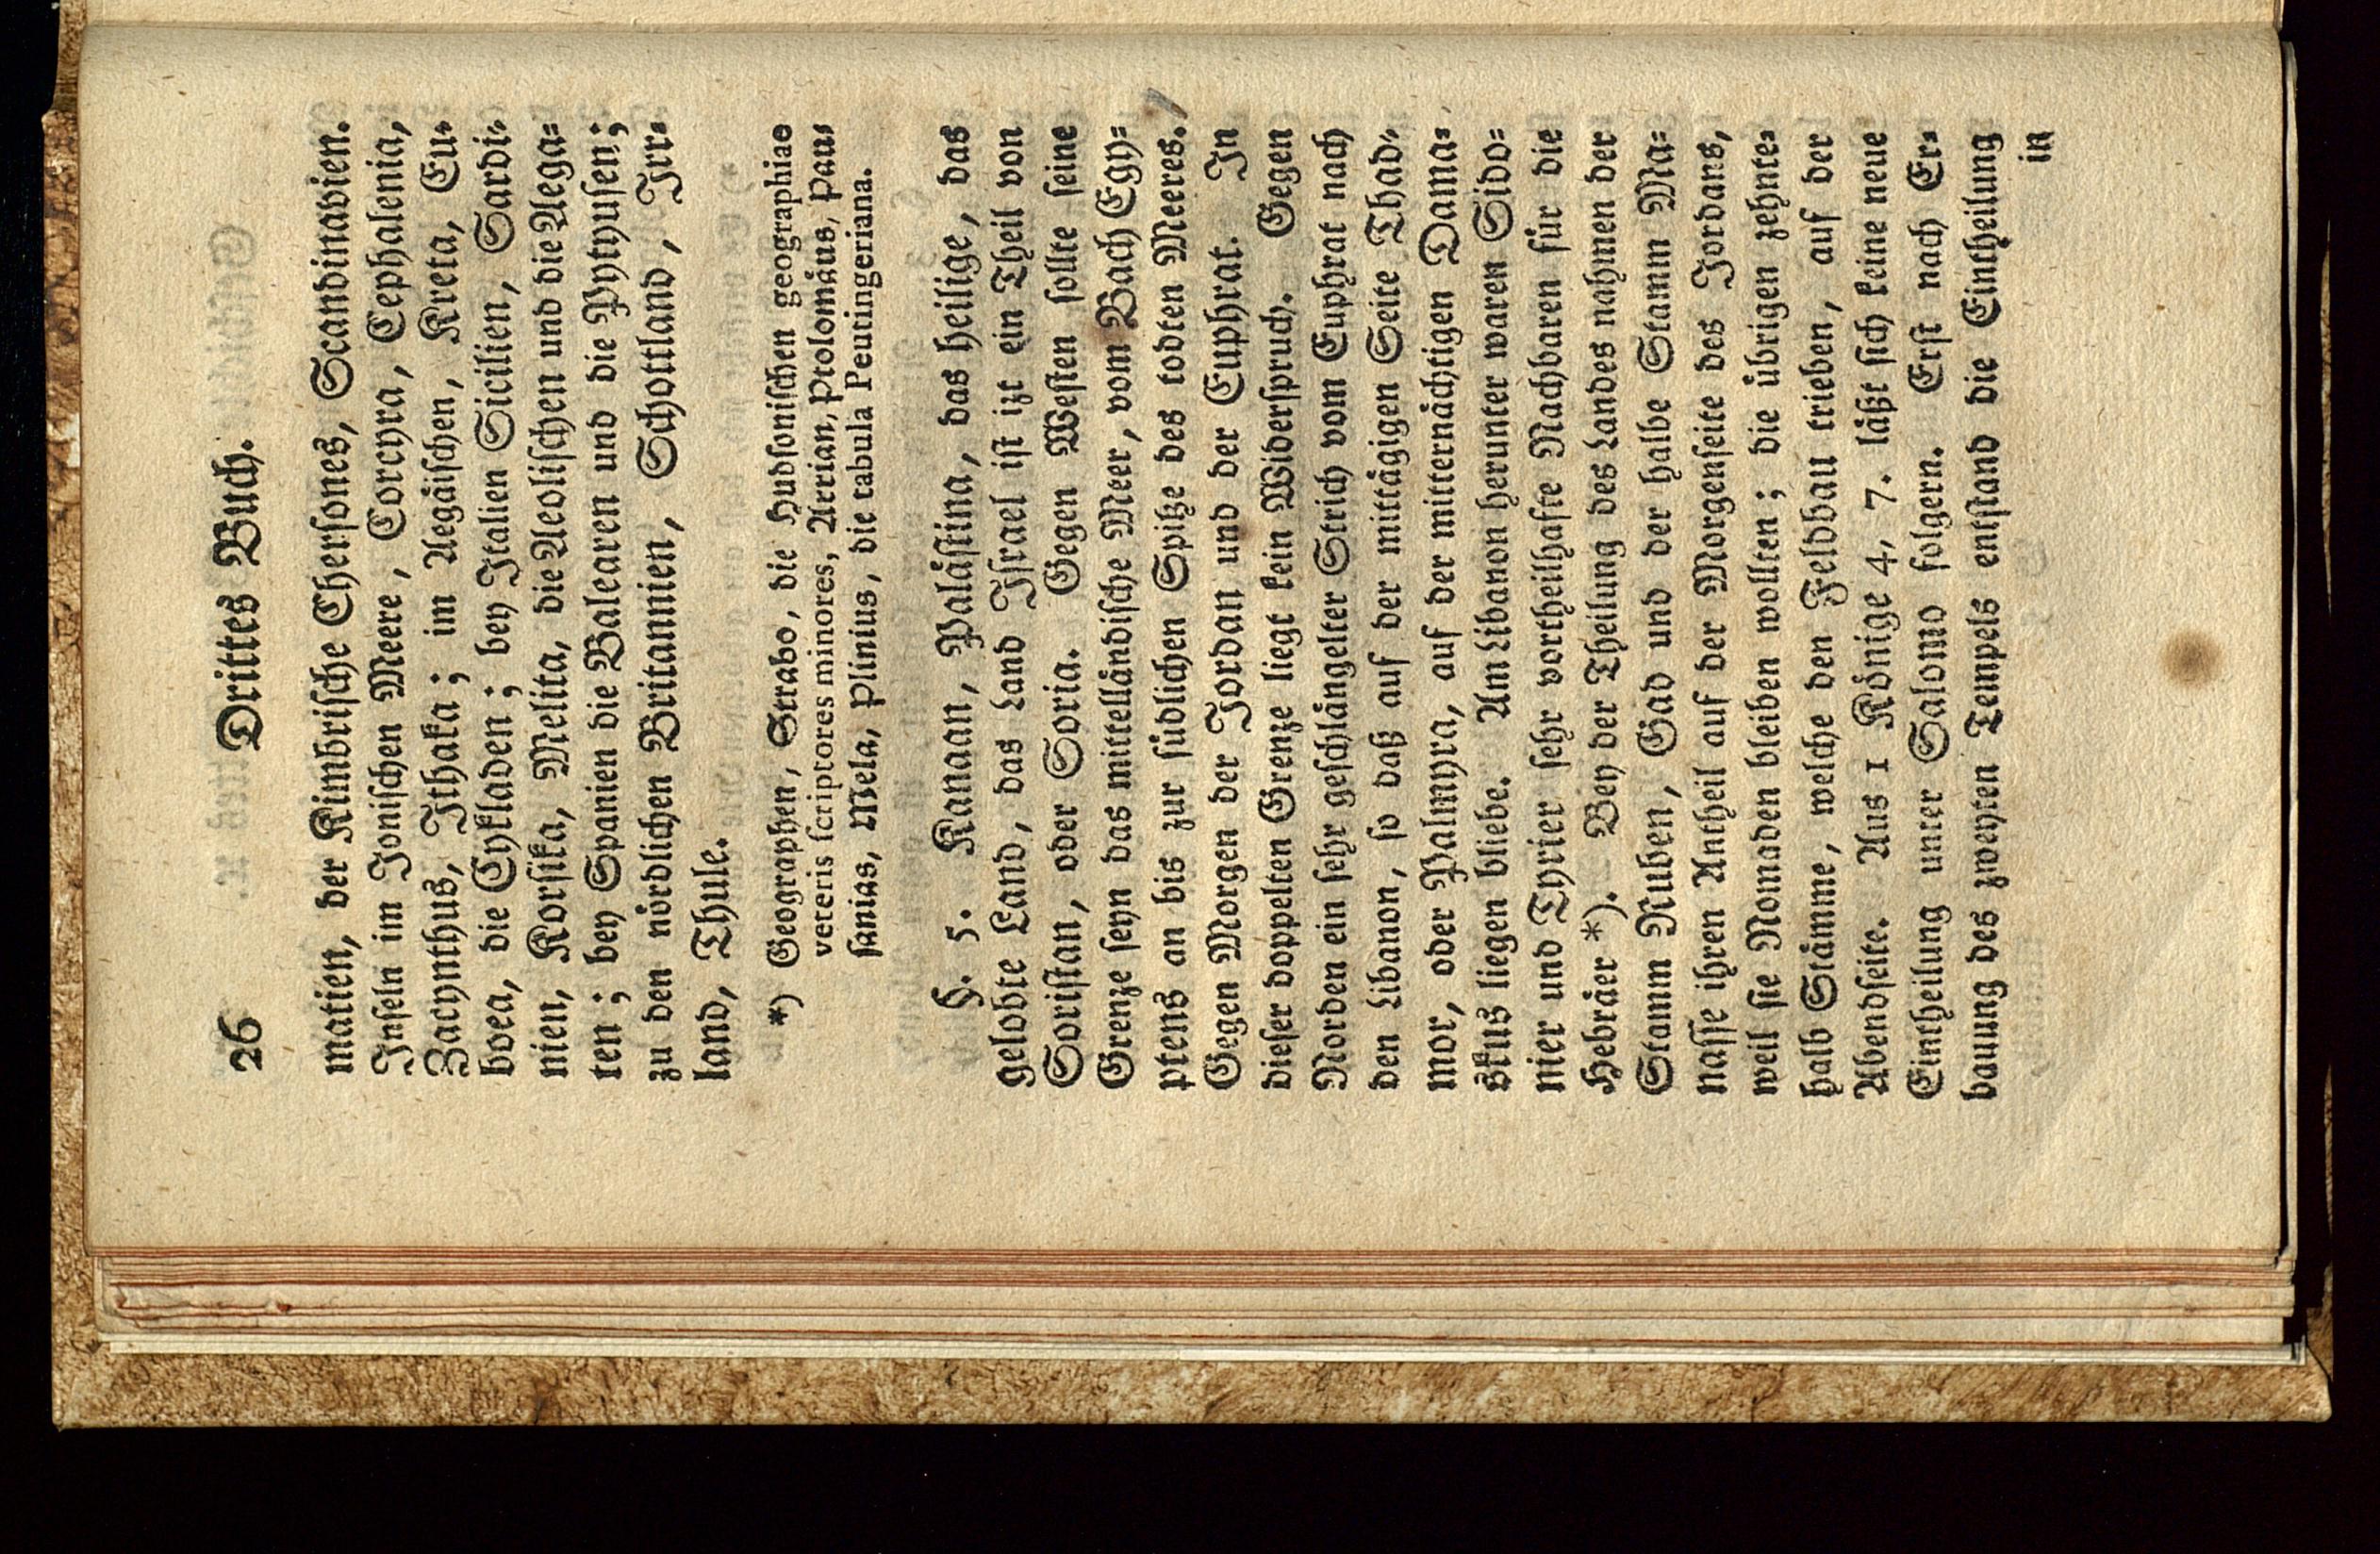 26 Drittes Buch.
matien, der Kimbrische Chersones, Scandinavien.
Inseln im Jonischen Meere, Corcyra, Cephalenia,
Zacynthus, Ithaka; im Aegäischen, Kreta, Eu-
boea, die Cykladen; bey Italien Sicilien, Sardi-
nien, Korsika, Melita, die Aeolischen und die Aega-
ten; bey Spanien die Balearen und die Pytyusen;
zu den nördlichen Britannien, Schottland, Irr-
land, Thule.
*) Geographen, Strabo, die Hudsonischen geographiae
veteris scriptores minores, Arrian, Ptolomäus, Pau-
sanias, Mela, Plinius, die tabula Peutingeriana.
§. 5. Kanaan, Palästina, das heilige, das
gelobte Land, das Land Israel ist izt ein Theil von
Soristan, oder Soria. Gegen Westen sollte seine
Grenze seyn das mittelländische Meer, vom Bach Egy-
ptens an bis zur südlichen Spitze des todten Meeres.
Gegen Morgen der Jordan und der Euphrat. In
dieser doppelten Grenze liegt kein Widerspruch. Gegen
Norden ein sehr geschlängelter Strich vom Euphrat nach
den Libanon, so daß auf der mittägigen Seite Thad-
mor, oder Palmyra, auf der mitternächtigen Dama-
skus liegen bliebe. Am Libanon herunter waren Sido-
nier und Tyrier sehr vortheilhafte Nachbaren für die
Hebräer *). Bey der Theilung des Landes nahmen der
Stamm Ruben, Gad und der halbe Stamm Ma-
nasse ihren Antheil auf der Morgenseite des Jordans,
weil sie Nomaden bleiben wollten; die übrigen zehnte-
halb Stämme, welche den Feldbau trieben, auf der
Abendseite. Aus 1 Könige 4, 7. läßt sich keine neue
Eintheilung unter Salomo folgern. Erst nach Er-
bauung des zweyten Tempels entstand die Eintheilung
in